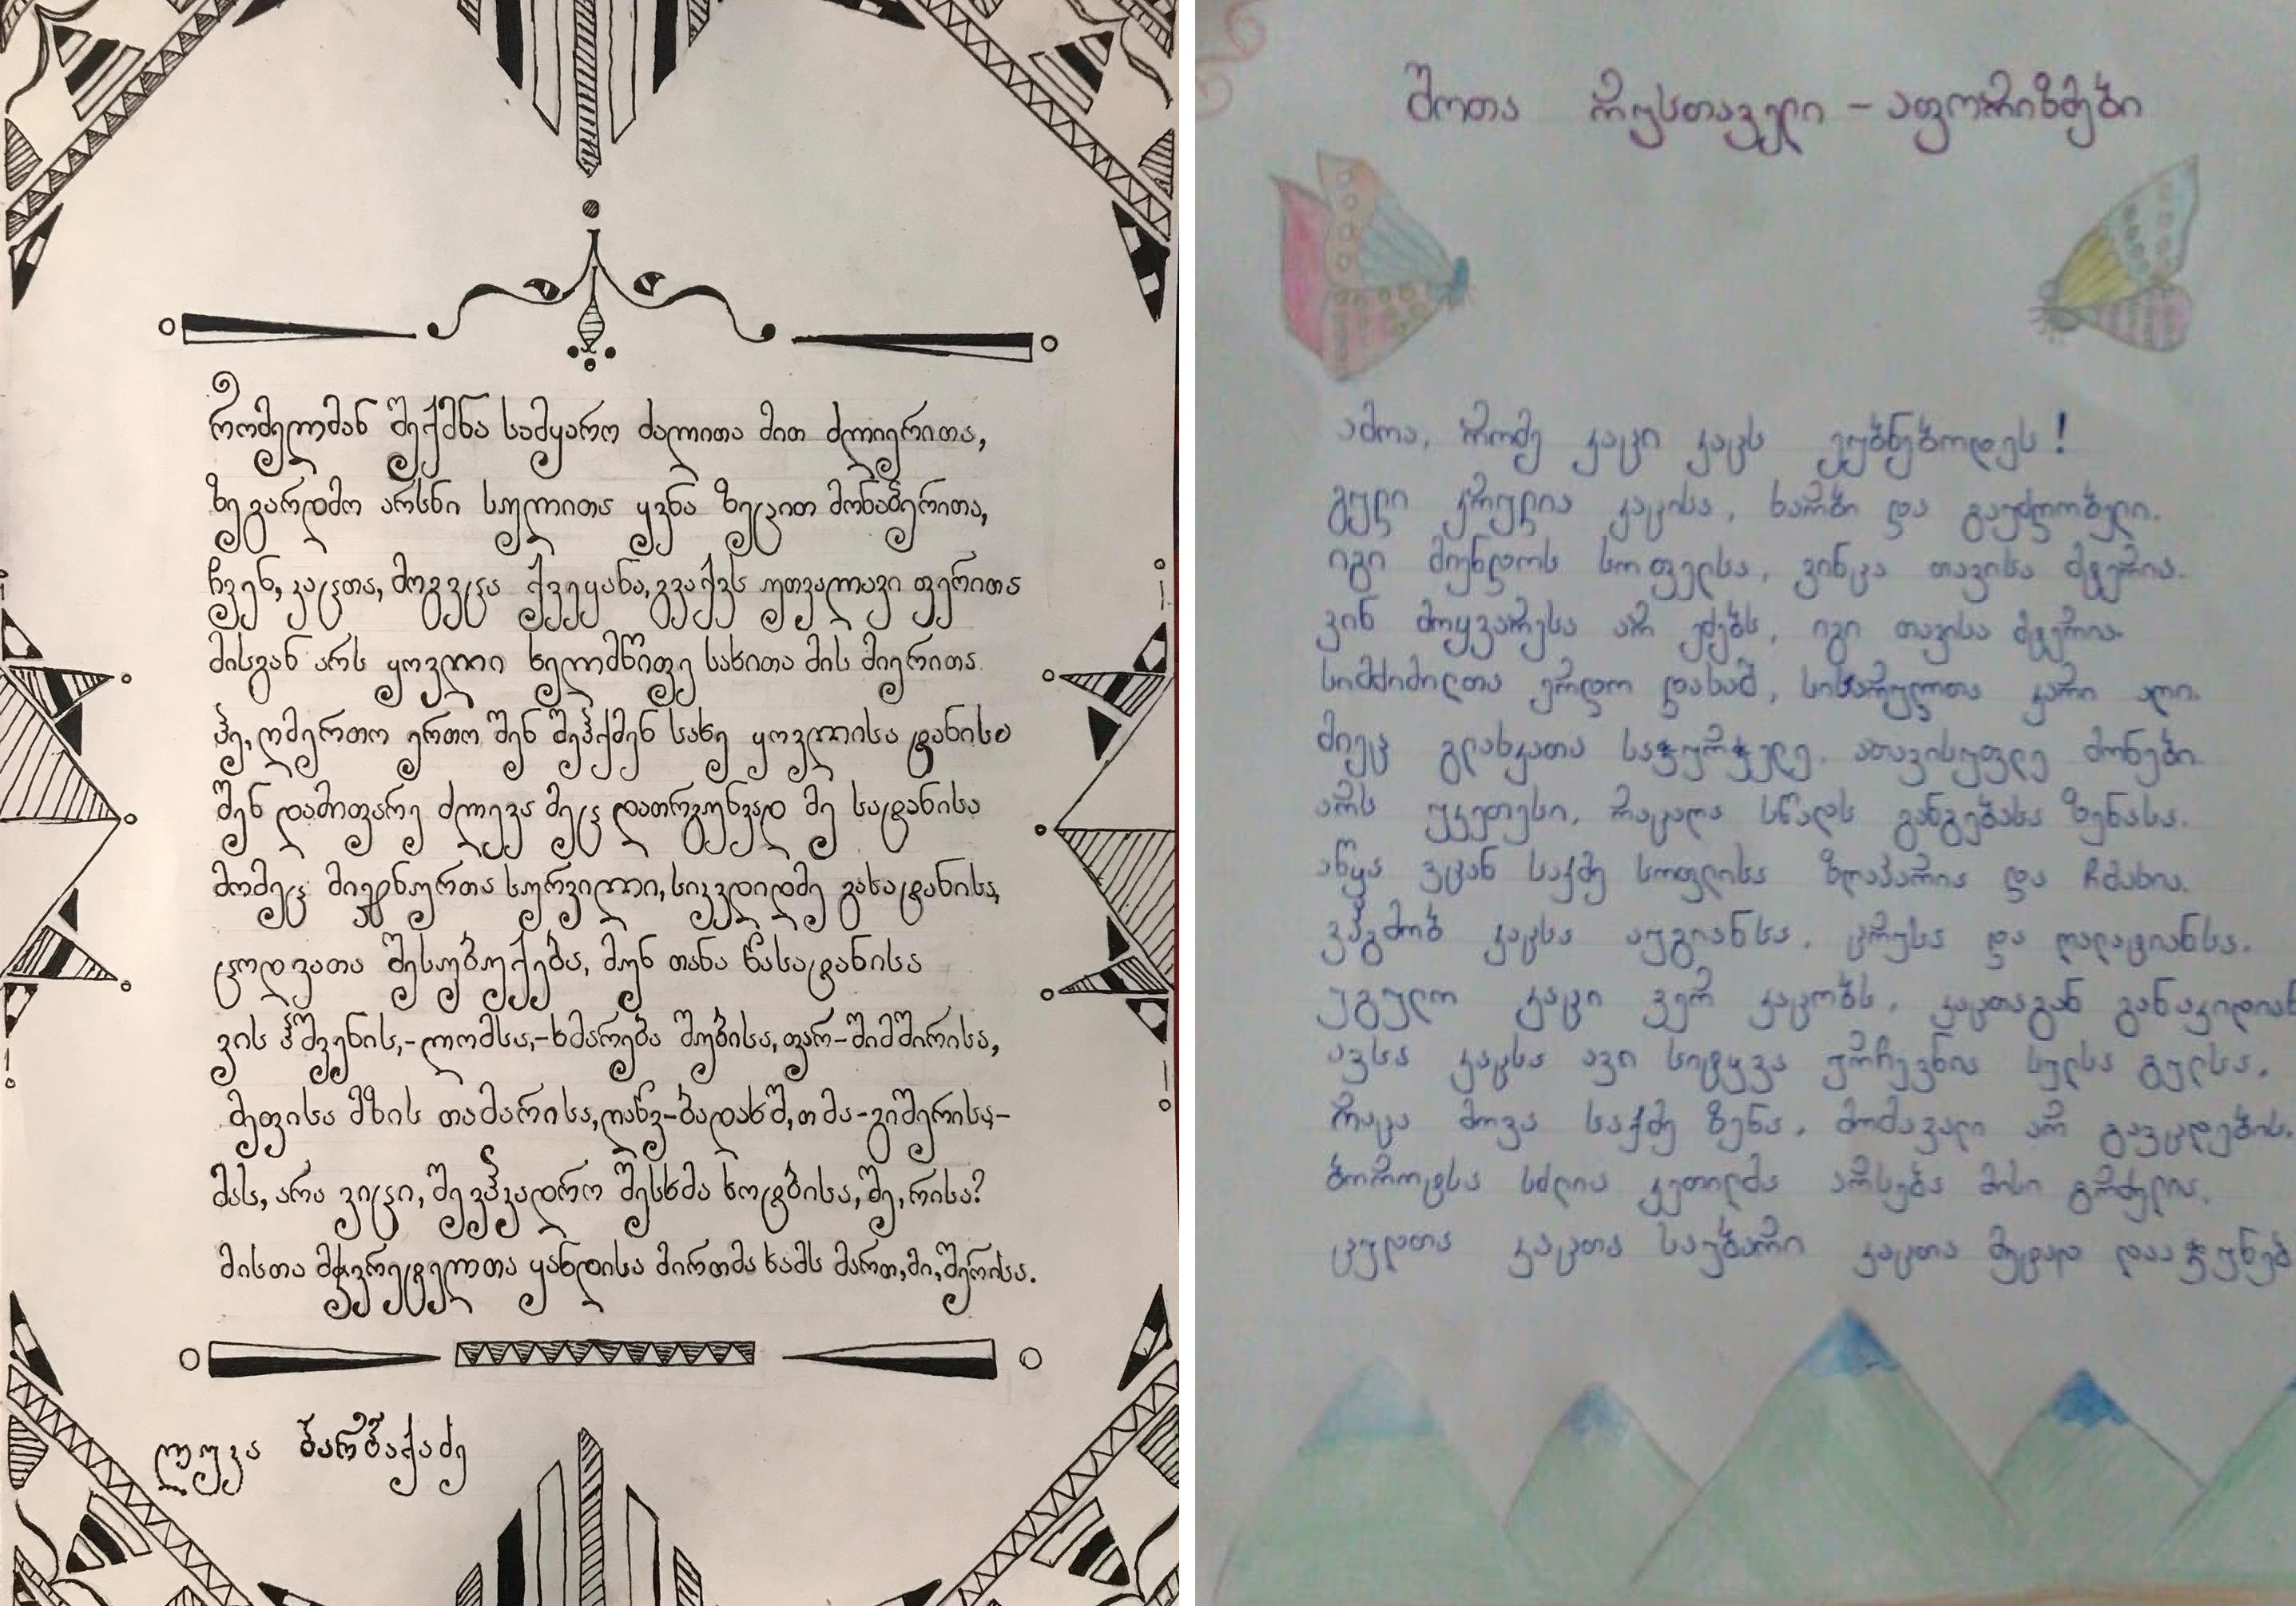 რომელმან შექმნა სამყარო ძალითა მით ძლიერითა,
ზეგარდმო არსნი სულითა ყვნა ზეცით მონაბერითა,
ჩვენ, კაცთა, მოგვცა ქვეყანა, გვაქვს უთვალავი ფერითა
მისგან არს ყოვლი ხელმწიფე სახითა მის მიერითა.
ჰე, ღმერთო ერთო შენ შეჰქმენ სახე ყოვლისა ტანისა
შენ დამიფარე ძლევა მეც დათრგუნვად მე სატანისა
მომეც მიჯნურთა სურვილი, სიკვდიდმე გასატანისა,
ცოდვათა შესუბუქება, მუნ თანა წასატანისა
ვის ჰშვენის,-ლომსა,-ხმარება შუბისა, ფარ-შიმშირისა,
მეფისა მზის თამარისა, ღაწვ-ბადახშ, თმა-გიშერისა,-
მას, არა ვიცი, შევჰკადრო შესხმა ხოტბისა, მე, რისა?
მისთა მჭვრეტელთა ყანდისა მირთმა ხამს მართ, მი, შერისა.
ლუკა ბარბაქაძე
შოთა რუსთაველი - აფორიზმები
ამოა, რომე კაცი კაცს ეუბნებოდეს!
გული კრულია კაცისა, ხარბი და გაუძღომელი.
იგი მიენდოს სოფელსა, ვინცა თავისა მტერია.
ვინ მოყვარესა არ ეძებს, იგი თავისა მტერია.
სიმძიმილთა ერდო დახაშ, სიხარულთა კარი აღი.
მიეც გლახკათა საჭურჭლე, ათავისუფლე მონები.
არს უკეთესი, რაცაღა სწადს განგებასა ზენასა.
აწყა ვცან საქმე სოფლისა ზღაპარია და ჩმახია.
ვჰგმობ კაცსა აუგიანსა, ცრუსა და ღალატიანსა.
უგულო კაცი ვერ კაცობს, კაცთაგან განაკიდიან
ავსა კაცსა ავი სიტყვა ურჩევნია სულსა გულსა.
რაცა მოვა საქმე ზენა, მომავალი არ გავცდების.
ბოროტსა სძლია კეთილმა არსება მისი გრძელია.
ცუდთა კაცთა საუბარი კაცთა მეტად დააჭუნებ